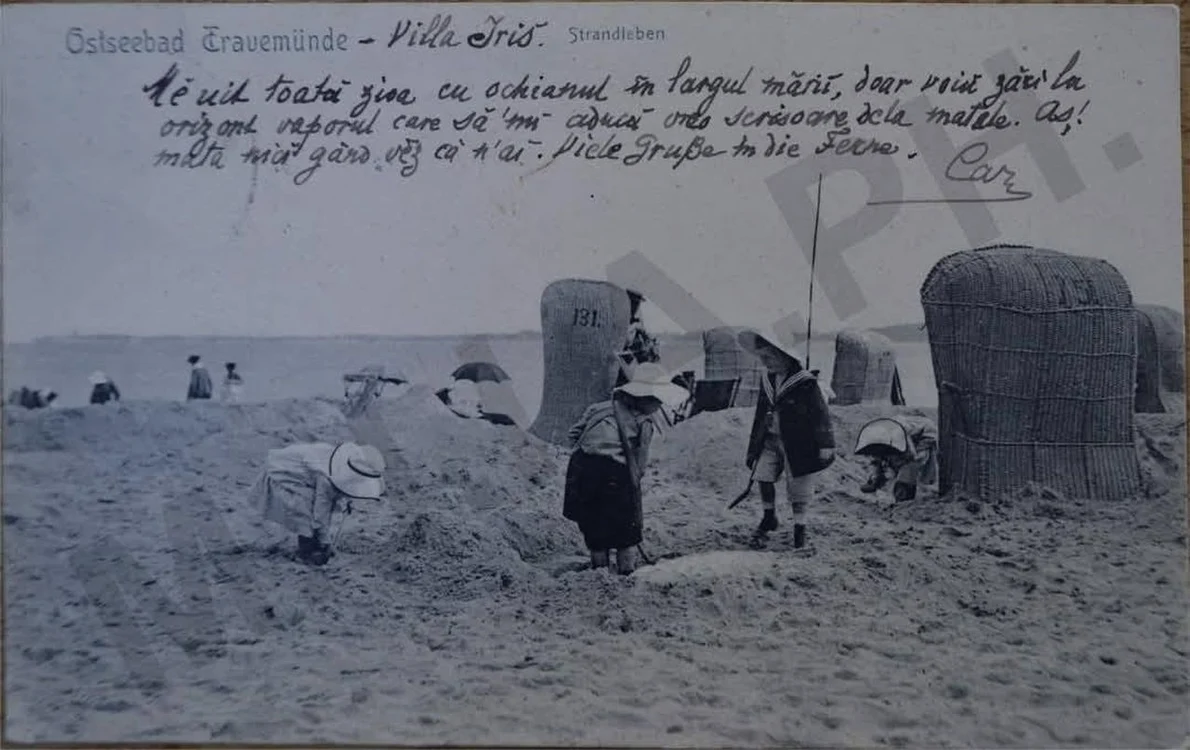 Ostseebad Travemünde - Villa Iris. Strandleben
Mĕ uit toată zioa cu ochianul în largul mării, doar voiu zări la
orizont vaporul care să 'mi aducă vreo scrisoare dela matale. Aș!
mata nici gând vĕz că n'ai. Viele Grüße in die Ferne.
131.